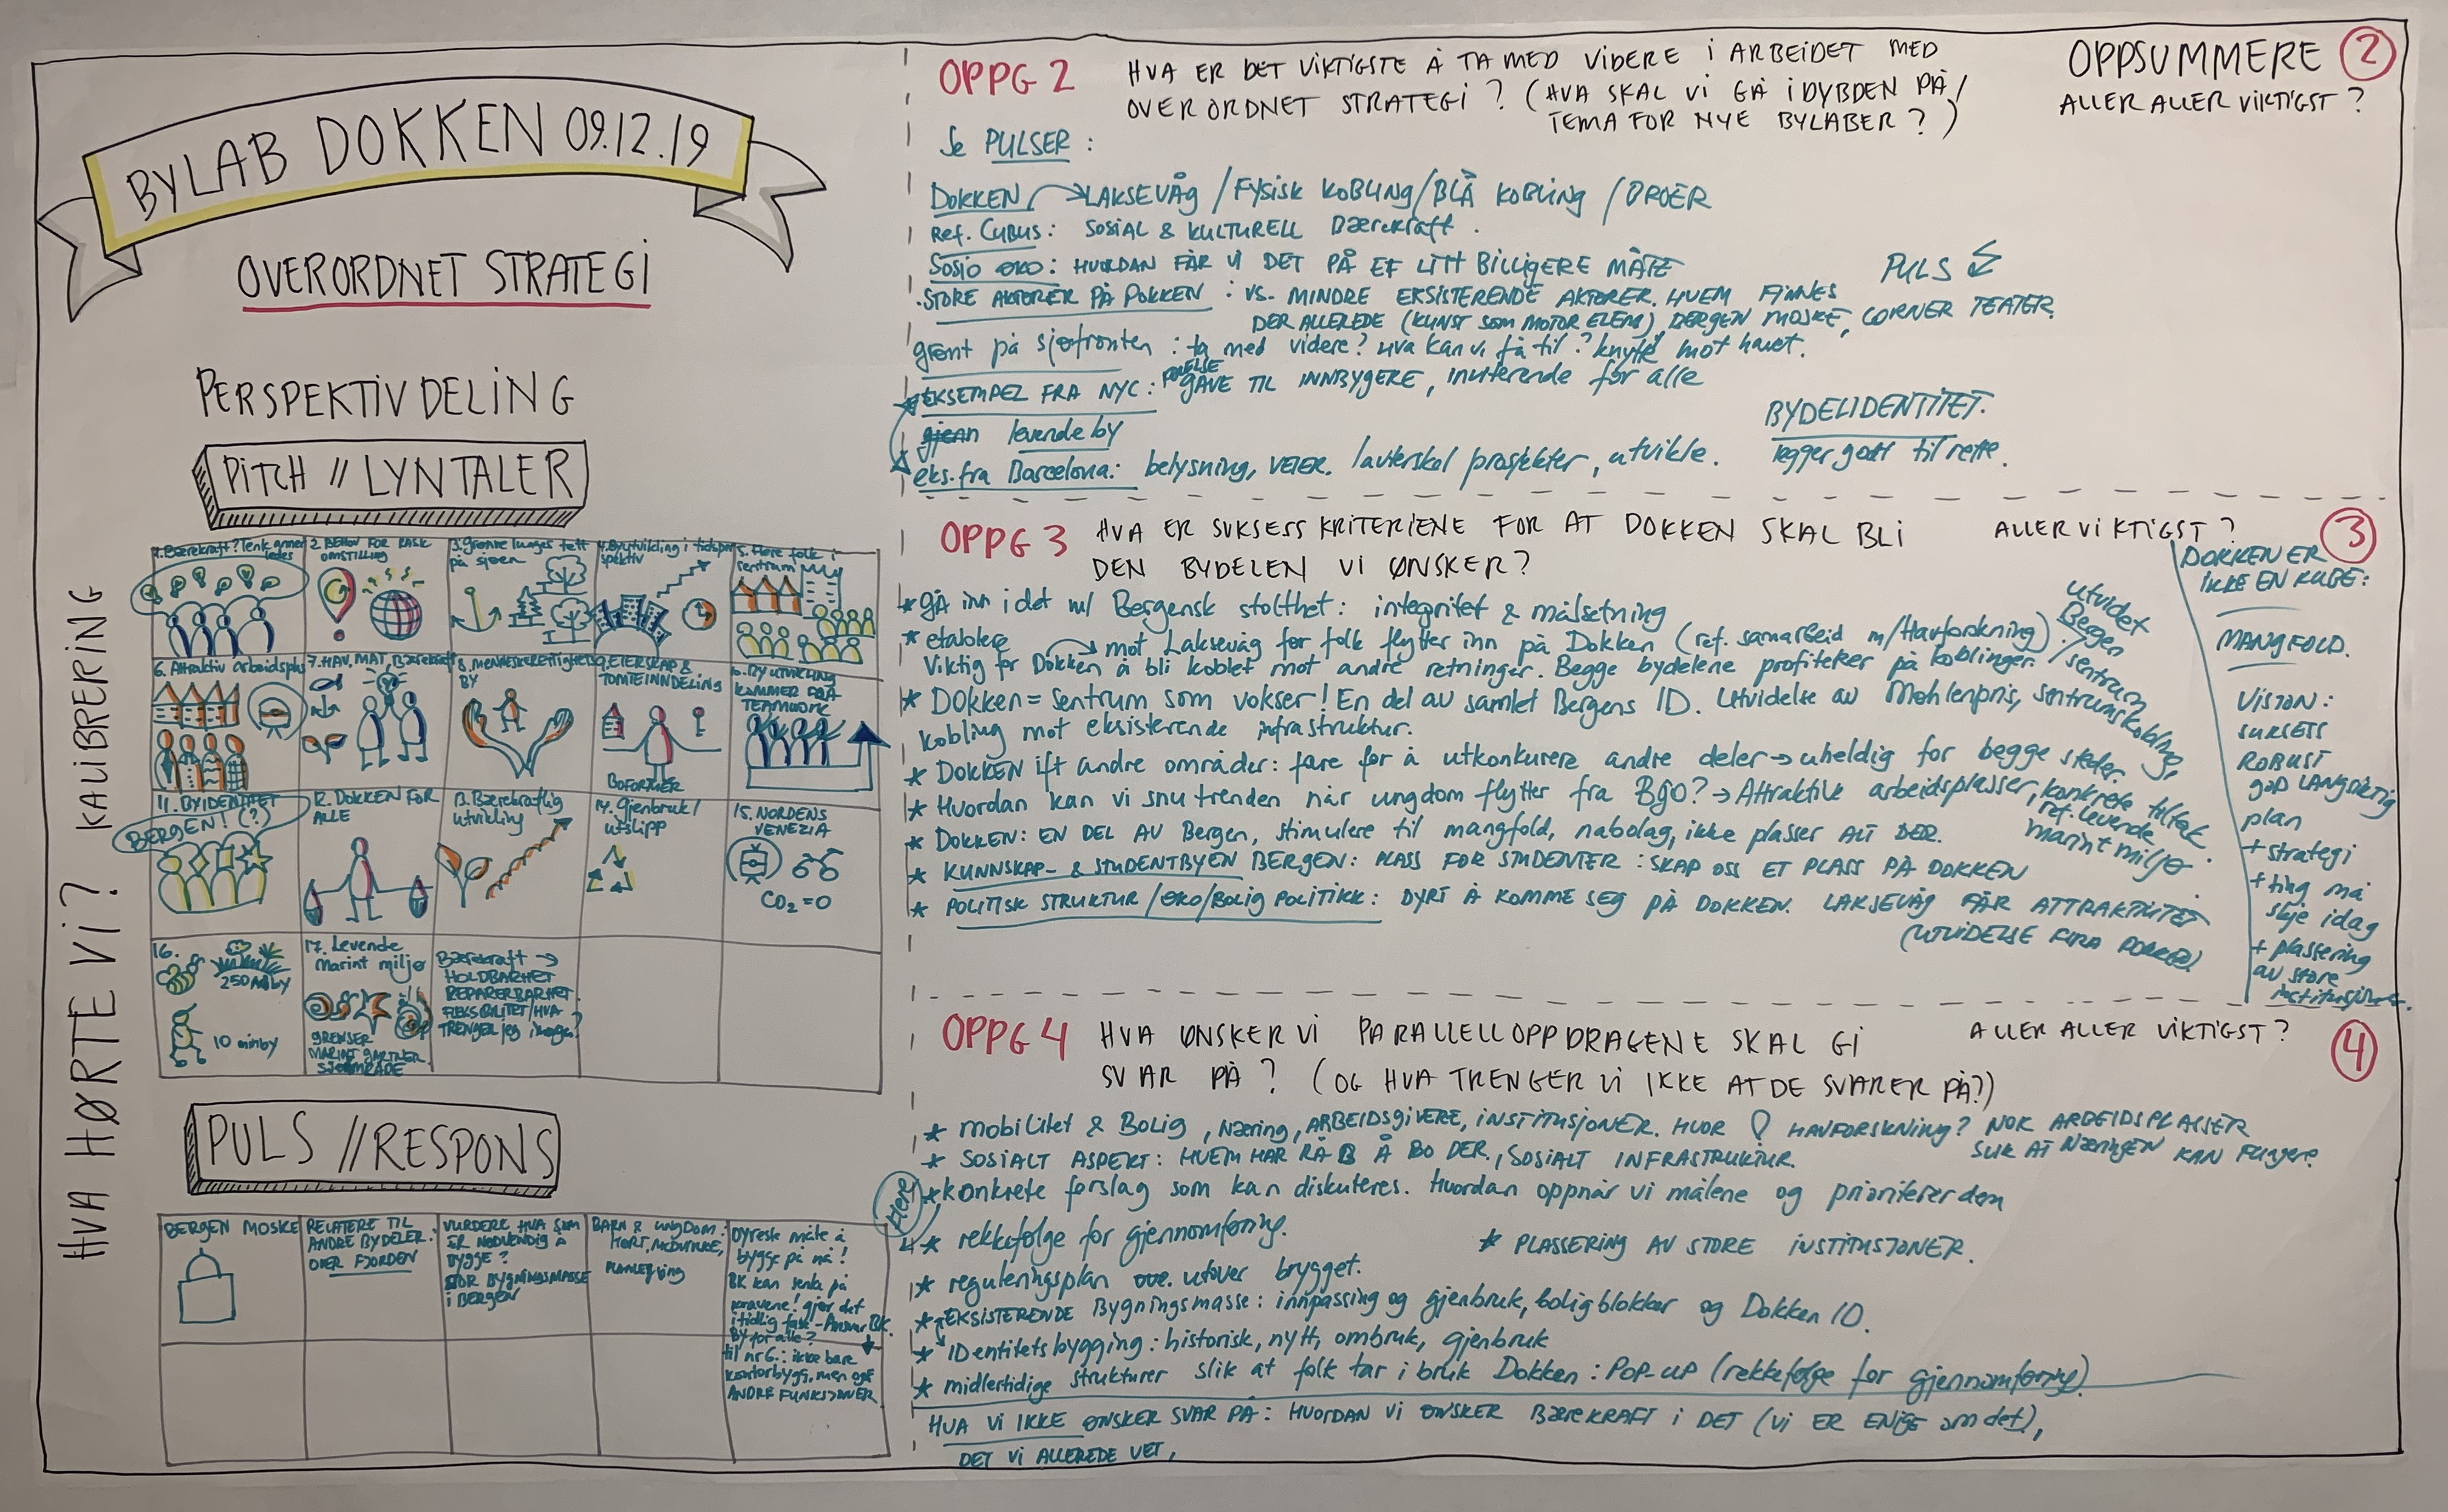 BYLAB DOKKEN 09.12.19
OVERORDNET STRATEGI
PERSPEKTIVDELING
HVA HØRTE VI? KALIBRERING
PITCH // LYNTALER
1. Bærekraft? Tenk anner
ledes
2. BEHOV FOR RASK
OMSTILLING
3. Grønne lunges tett
på sjøen
4. Byutvikling i tidsper
spektiv
5. Flere folk i
sentrum
6. Attraktiv arbeidsplass
7. HAV, MAT, Bærekraft
8. MENNESKERETTIGHETS
BY
9. EIERSKAP &
TOMTEINNDELING
BOFORMER
10. BYUTVIKLING
KOMMER FRA
TEAMWORK
11. BYIDENTITET
BERGEN! (?)
12. DOKKEN FOR
ALLE
13. Bærekraftig
utvikling
14. Gjenbruk/
utslipp
15. NORDENS
VENEZIA
CO2=0
16.
10 minby
17. Levende
marint miljø
GRENSER
MARINT GARTNER
SJØOMRÅDE
Bærekraft →
HOLDBARHET
REPARERBARHET
FLEKSIBILITET/HVA
TRENGER jeg
PULS // RESPONS
BERGEN MOSKE
RELATERE TIL
ANDRE BYDELER.
OVER FJORDEN
VURDERE HVA SOM
ER NØDVENDIG Å
BYGGE?
STOR BYGNINGSMASSE
i BERGEN
BARN & UNGDOM:
HØRT, MEDVIRKE,
Dyreste måte å
bygge på nå!
BK kan senke på
kravene! gjør det
i tidlig fase - Ansvar BK.
BY for alle?
til nr 6: ikke bar
kontorbygg, men også
ANDRE FUNKSJONER
OPPG 2 HVA ER DET VIKTIGSTE Å TA MED VIDERE I ARBEIDET MED
OVERORDNET STRATEGI? (HVA SKAL VI GÅ I DYBDEN PÅ/
TEMA FOR NYE BYLABER?)
OPPSUMMERE 2
ALLER ALLER VIKTIGST?
Se PULSER:
DOKKEN → LAKSEVÅG / FYSISK KOBLING / BLÅ KOBLING /
Ref. CUBUS: SOSIAL & KULTURELL Bærekraft.
SOSIO ØKO: HVORDAN FÅR VI DET PÅ EF LITT BILLIGERE MÅTE
PULS
STORE AKTØRER PÅ DOKKEN: VS. MINDRE EKSISTERENDE AKTØRER. HVEM FINNES
DER ALLEREDE (KUNST SOM MOTOR ELEM), BERGEN MOSKE, CORNER TEATER.
grønt på sjøfronten: ta med videre? Hva kan vi få til? knytte mot havet.
EKSEMPEL FRA NYC: FØLELSE GAVE TIL INNBYGERE, inviterende for alle
gjenn levende by
eks. fra Barcelona: belysning, VEIER. lavterskel prosjekter, utvikle.
BYDELIDENTITET.
legger godt til rette.
OPPG 3 HVA ER SUKSESS KRITERIENE FOR AT DOKKEN SKAL BLI
DEN BYDELEN VI ØNSKER?
ALLER VIKTIGST? 3
* gå inn i det m/ Bergensk stolthet: integritet & målsetning
* etablere → mot Laksevåg før folk flytter inn på Dokken (ref. samarbeid m/Havforskning).
Viktig for Dokken å bli koblet mot andre retninger. Begge bydelene profiterer på koblinger.
* DOKKEN = Sentrum som vokser! En del av samlet Bergens ID. Utvidelse av Møhlenpris, sentrumskobling,
kobling mot eksisterende infrastruktur.
utvidet
Bergen
sentrum
* DOKKEN ift andre områder: fare for å utkonkurere andre deler → uheldig for begge steder.
* Hvordan kan vi snu trenden når ungdom flytter fra BGO? → Attraktive arbeidsplasser, konkrete tiltak
ref. levende
marint miljø.
* DOKKEN: EN DEL AV Bergen, stimulere til mangfold, nabolag, ikke plasser ALT DER.
* KUNNSKAP- & STUDENTBYEN BERGEN: PLASS FOR STUDENTER: SKAP OSS ET PLASS PÅ DOKKEN
* POLITISK STRUKTUR/ØKO/BOLIG POLITIKK: DYRT Å KOMME SEG PÅ DOKKEN. LAKSEVÅG FÅR ATTRAKTIVITET
(UTVIDELSE FRA DOKKEN)
DOKKEN ER
IKKE EN KUBE:
MANGFOLD.
VISJON:
SUKSESS
ROBUST
GOD LANGSIKTIG
plan
+ strategi
+ ting må
skje idag
+ plassering
av store
institusjoner.
OPPG 4 HVA ØNSKER VI PARALLELLOPPDRAGENE SKAL GI
SVAR PÅ? (OG HVA TRENGER VI IKKE AT DE SVARER PÅ?)
ALLER ALLER VIKTIGST? 4
* mobilitet & Bolig, Næring, ARBEIDSGIVERE, INSTITUSJONER. HVOR HAVFORSKNING? NOK ARBEIDSPLASSER
SLIK AT NÆRINGEN KAN Fungere.
* SOSIALT ASPEKT: HVEM HAR RÅD Å BO DER., SOSIALT INFRASTRUKTUR.
Flere
* konkrete forslag som kan diskuteres. Hvordan oppnår vi målene og prioriterer dem
* rekkefølge for gjennomføring.
* PLASSERING AV STORE INSTITUSJONER.
* reguleringsplan utover brygget.
* EKSISTERENDE Bygningsmasse: innpassing og gjenbruk, boligblokker og Dokken ID.
* IDentitetsbygging: historisk, nytt, ombruk, gjenbruk
* midlertidige strukturer slik at folk tar i bruk Dokken: POP-UP (rekkefølge for gjennomføring)
HVA VI IKKE ØNSKER SVAR PÅ: HVORDAN VI ØNSKER BÆREKRAFT i DET (Vi ER ENIGE om det),
DET VI ALLEREDE VET,